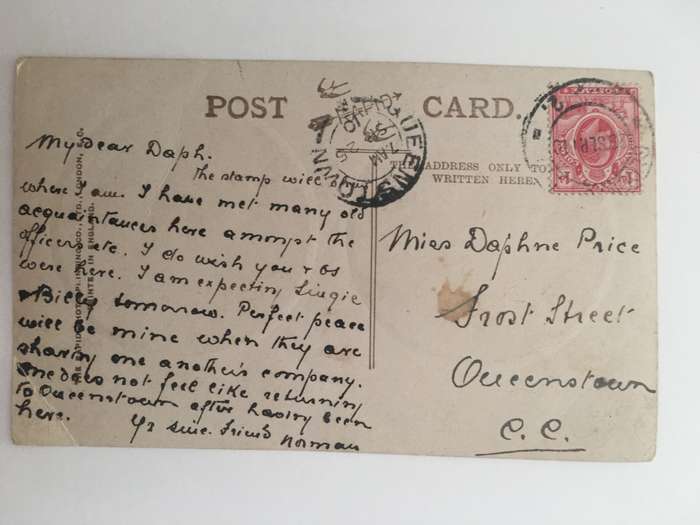 POST CARD.
THE ADDRESS ONLY TO
WRITTEN HERE
QUEENSTOWN
7 AM
My dear Daph.
The stamp will show
where I am. I have met many old
acquaintances here amongst the
officers etc. I do wish you &
were here. I am expecting Lingie
& Billy tomorrow. Perfect peace
will be mine when they are
sharing one another's company.
One does not feel like returning
to Queenstown after having been
here.
Yr sinc. Friend Norman
Miss Daphne Price
Frost Street
Queenstown
C.C.
LONDON,
PRINTED IN ENGLAND.